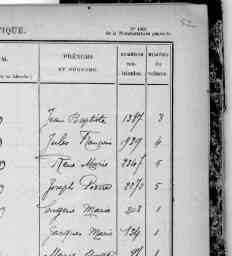 TIQUE.
N° 140
de la Nomenclature générale.
52
PRÉNOMS
ET SURNOMS.
NUMÉROS
ma-
tricules.
NUMÉROS
du
volume.
Jean Baptiste 1387 3
Jules François 1929 4
René Marie 2347 5
Joseph Pierre 2273 5
Eugène Marie 303 1
Jacques Marie 134 1
Marie